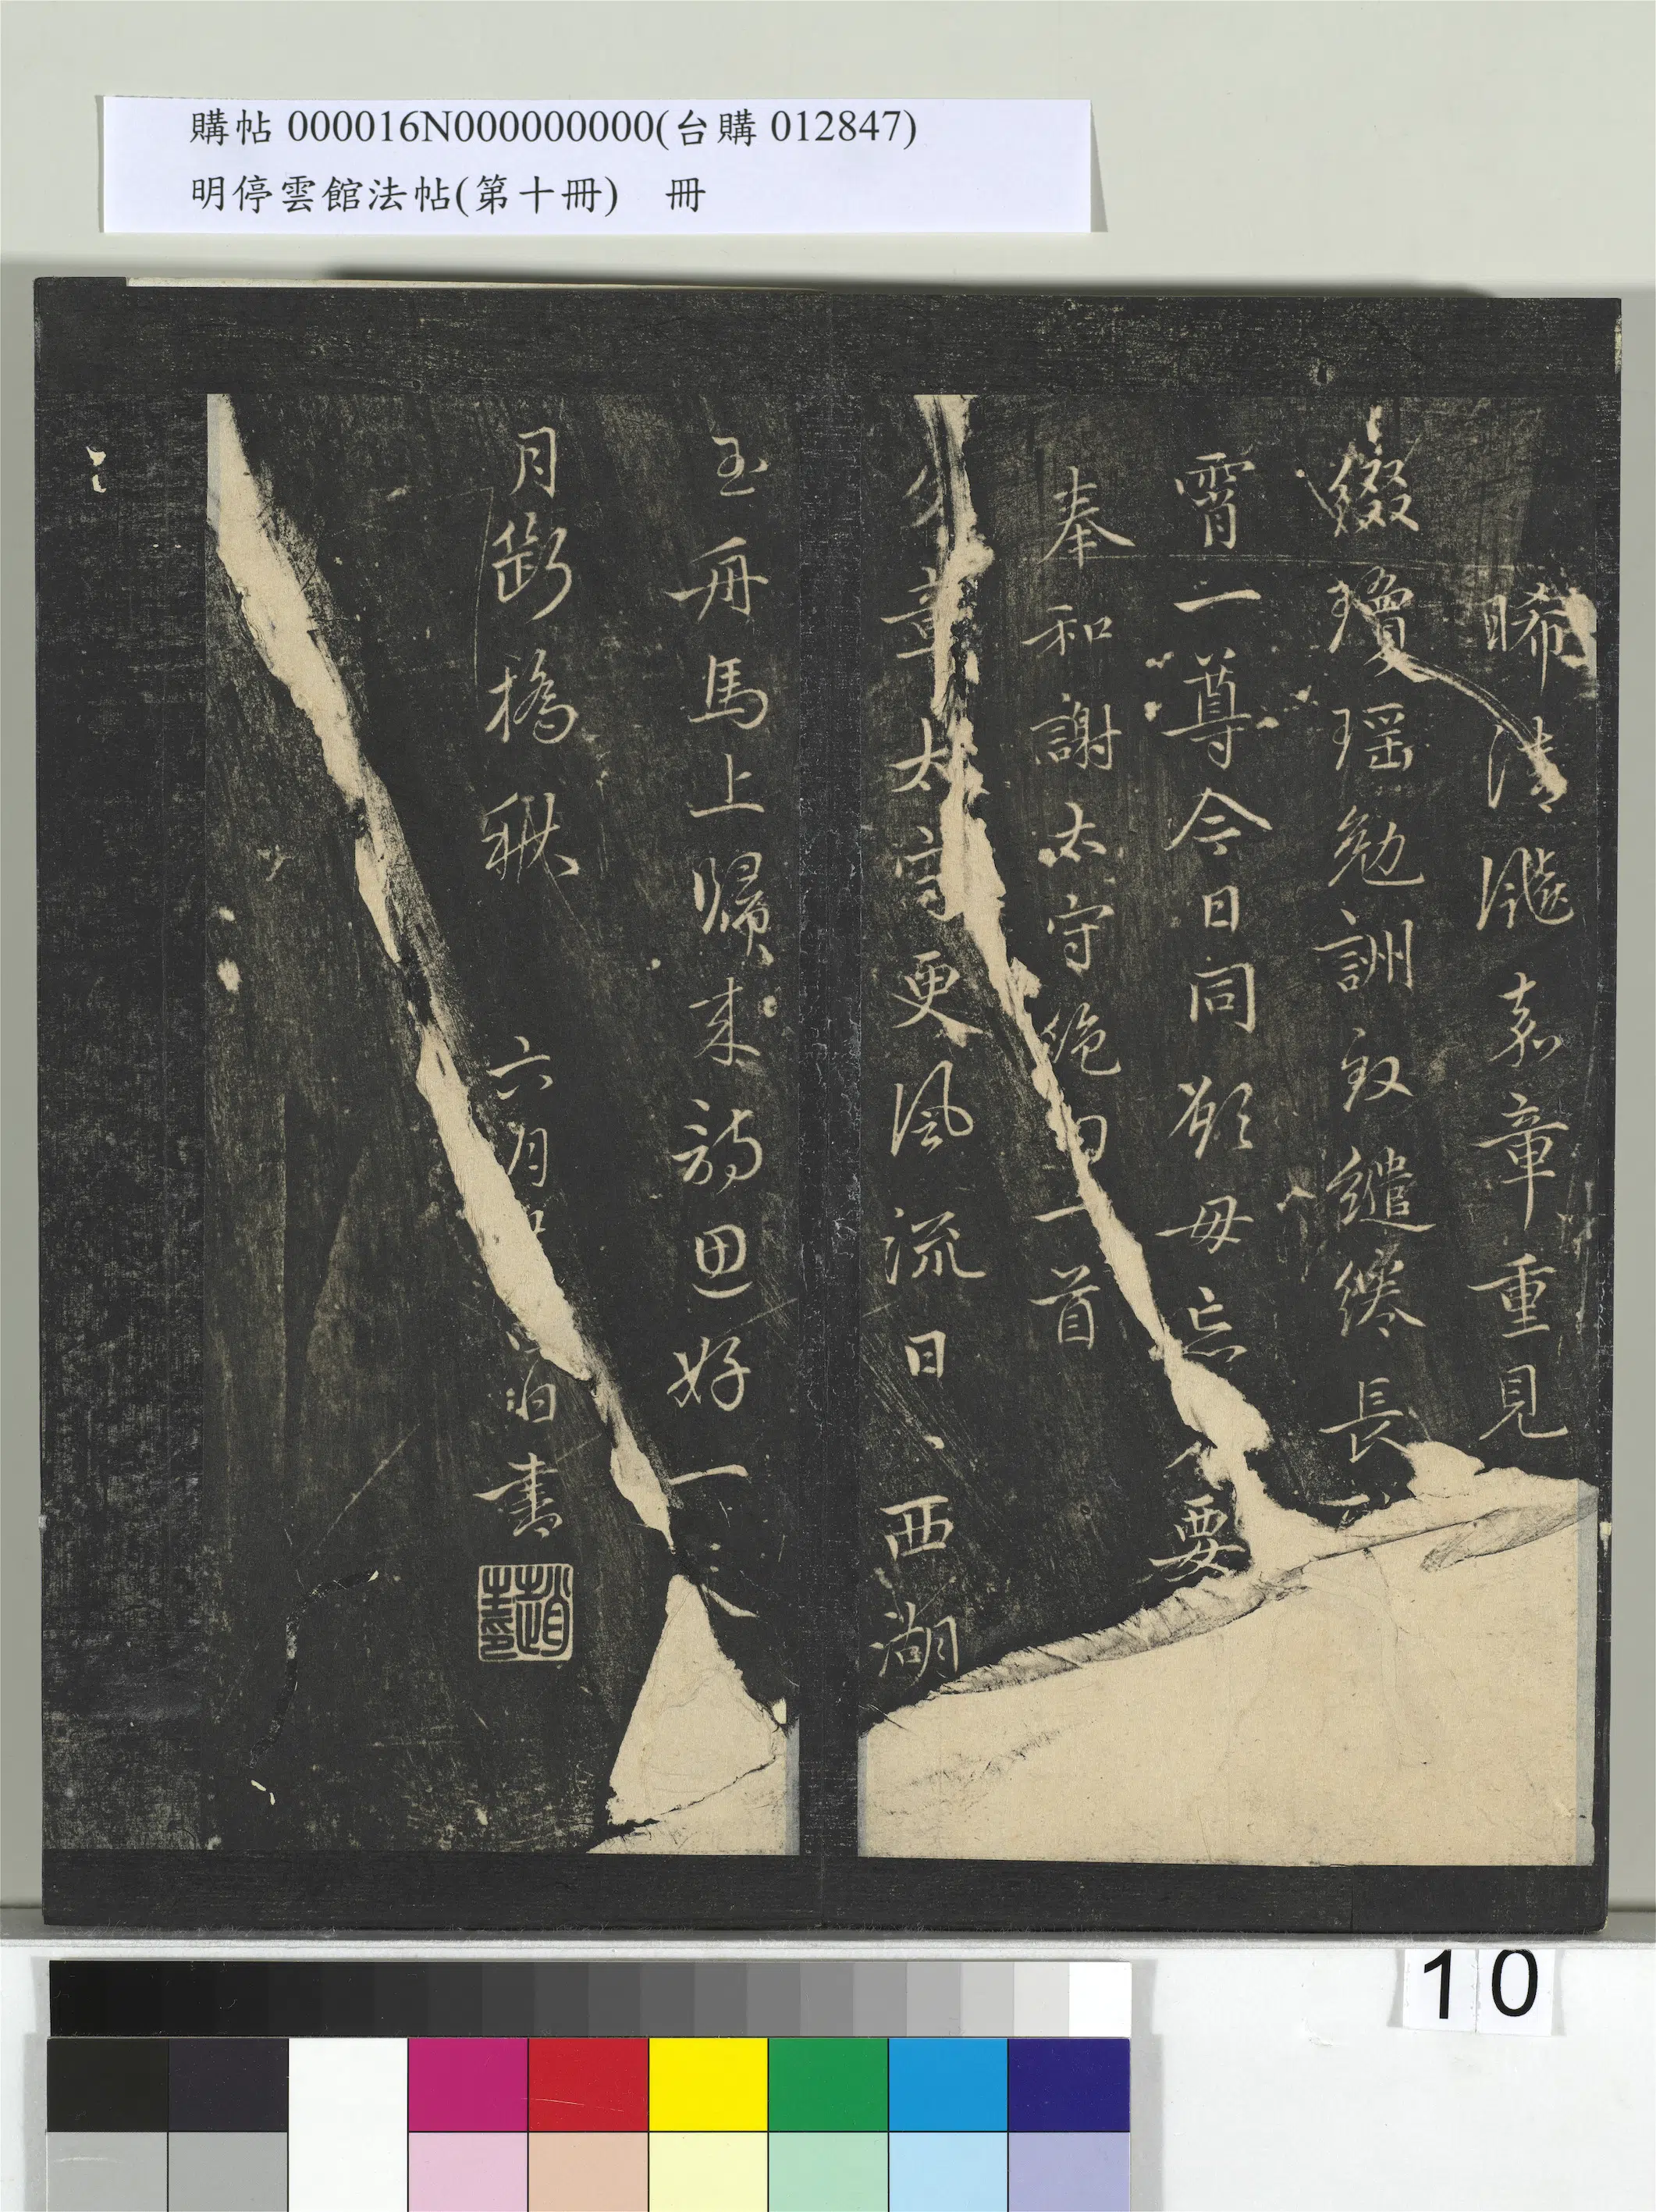 購帖 000016N000000000(台購 012847)
明停雲館法帖(第十冊) 冊
晞清飈嘉章重見
綴瓊瑶勉詶敘繾綣長
宵一尊今日同歡毋忘要
奉和謝太守絶句一首
章太守更風流日、西湖
玉舟馬上歸來詩思好一天
月斷橋秋
六月 伯書
趙 印
10